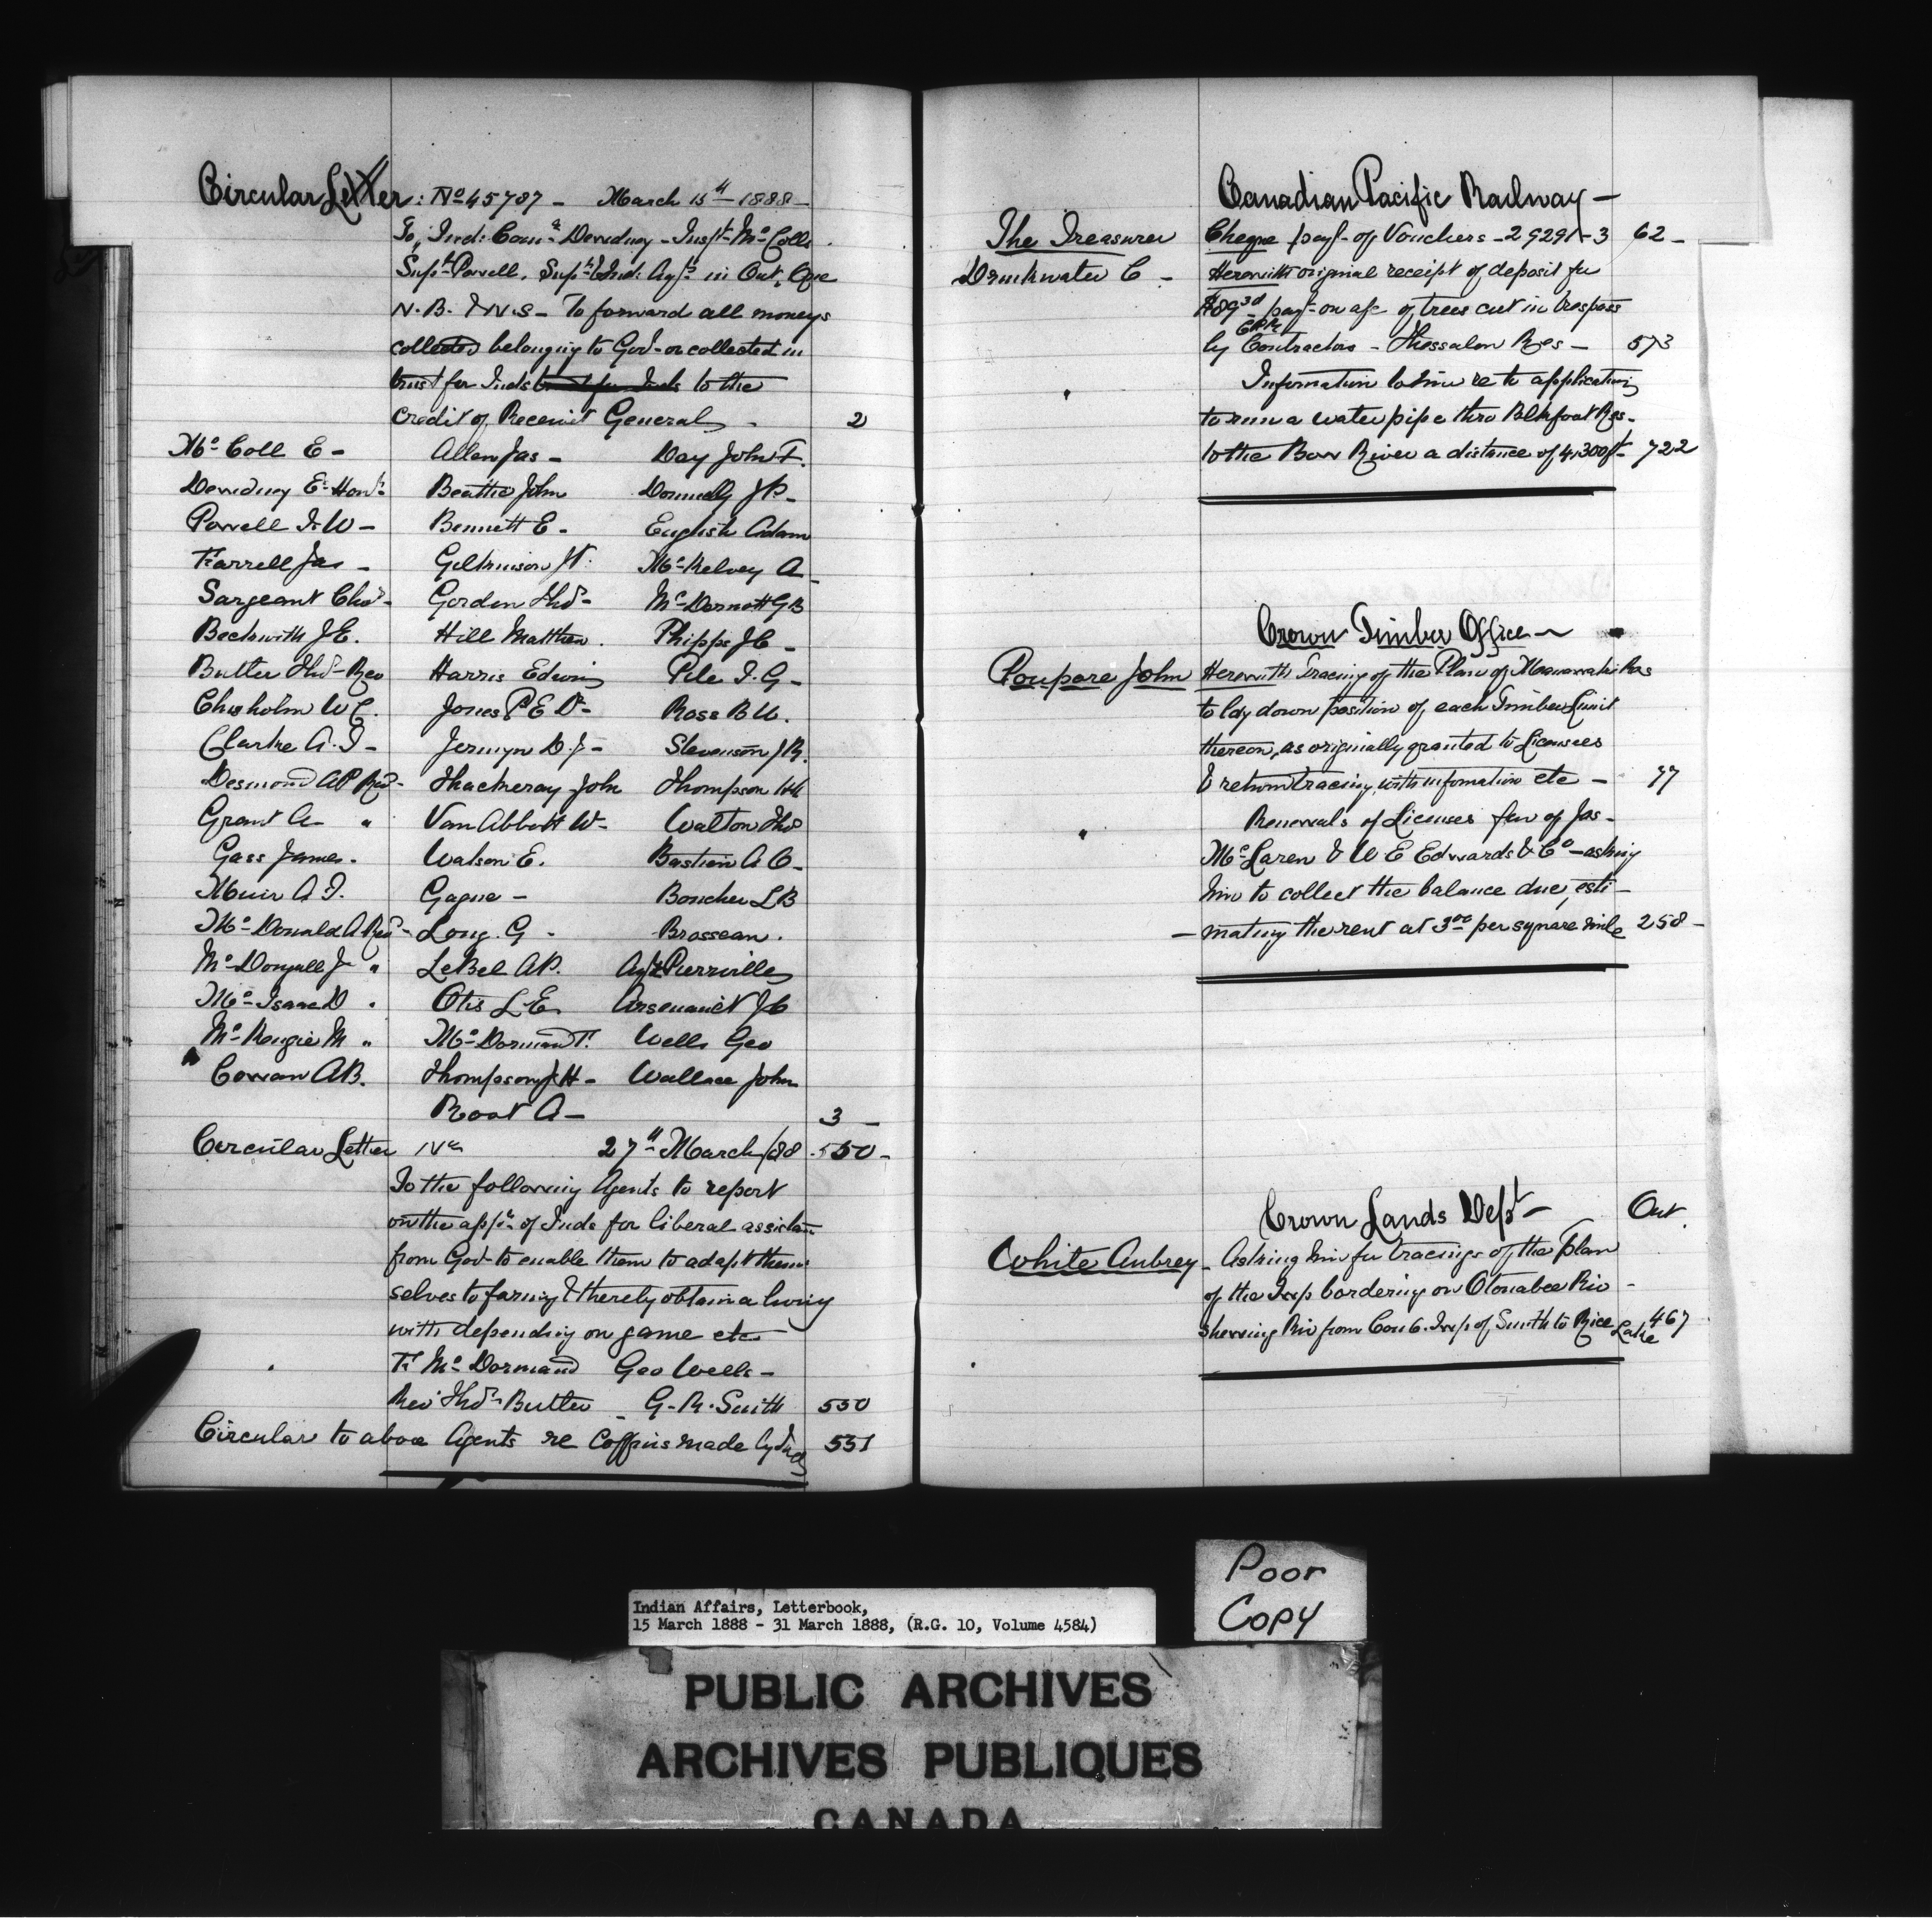 Circular Letter: No 45787 - March 15th 1888 -
To Ind: Comr Dewdney - Inspr McColl
Supt Powell, Supts & Ind: Agts in Ont, Que
N.B. & N.S - To forward all moneys
collected belonging to Govt or collected in
trust for Inds trust for Inds to the
credit of Receivr General - 2
McColl E - Allen Jas - Day John F.
Dewdney E. Honl Beattie John Donnelly J P -
Powell I. W - Bennett E - English Adam
Farrell Jas - Gilkinson J T. McKelvey A -
Sargeant Chas - Gordon Thos - McDermott G B
Beckwith J E. Hill Matthew. Phipps J C -
Butler Thos - Rev Harris Edwin Pile T. G -
Chisholm W C. Jones P E Dr - Ross B W.
Clarke A. T - Jermyn D. J - Stevenson J R.
Desmond A P Revd - Thackeray John Thompson
Grant A - " Van Abbott W - Walton Thos
Gass James - Watson E. Bastien A O -
Muir A. T. Gagne - Boucher L B
McDonald A Revd - Long. G - Brosseau.
McDougall J " LeBel A P. Agt Pierreville
McIsaac D " Otis L E Arsenault J C
McKenzie M " McDormand F. Wells Geo
Cowan A B. Thompson J H - Wallace John
Root A - 3 -
Circular Letter No 27th March /88 550 -
To the following Agents to report
on the appn of Inds for liberal assistan
from Govt to enable them to adapt them
selves to farming & thereby obtain a living
with depending on game etc -
F. McDormand Geo Wells -
Rev Thos Butler - G. R. Smith 550
Circular to above Agents re Coffins made by Inds 551
Canadian Pacific Railway -
The Treasurer Cheque payt of Vouchers - 29291 - 3 62 -
Drinkwater C - Herewith original receipt of deposit for
$89 30 payt on a/c of trees cut in trespass
CPR
by Contractors - Thessalon Res - 573
Information to him re to application
to run a water pipe thro Blkfoot Res -
to the Bow River a distance of 4,300 ft - 722
Crown Timber Office -
Poupore John Herewith Tracing of the Plan of Maniwaki Res
to lay down position of each Timber Limit
thereon, as originally granted to Licensees
& return tracing, with information etc - 77
Renewals of Licenses fav of Jas -
McLaren & W E Edwards & Co - asking
him to collect the balance due, esti -
- mating the rent at 3 00 per square mile 258 -
Crown Lands Dept - Ont.
White Aubrey - Asking him for tracings of the Plan
of the Twp bordering on Otonabee Riv -
shewing Riv from Con 6. Twp of Smith to Rice Lake 467
Poor
Copy
Indian Affairs, Letterbook,
15 March 1888 - 31 March 1888, (R.G. 10, Volume 4584)
PUBLIC ARCHIVES
ARCHIVES PUBLIQUES
CANADA